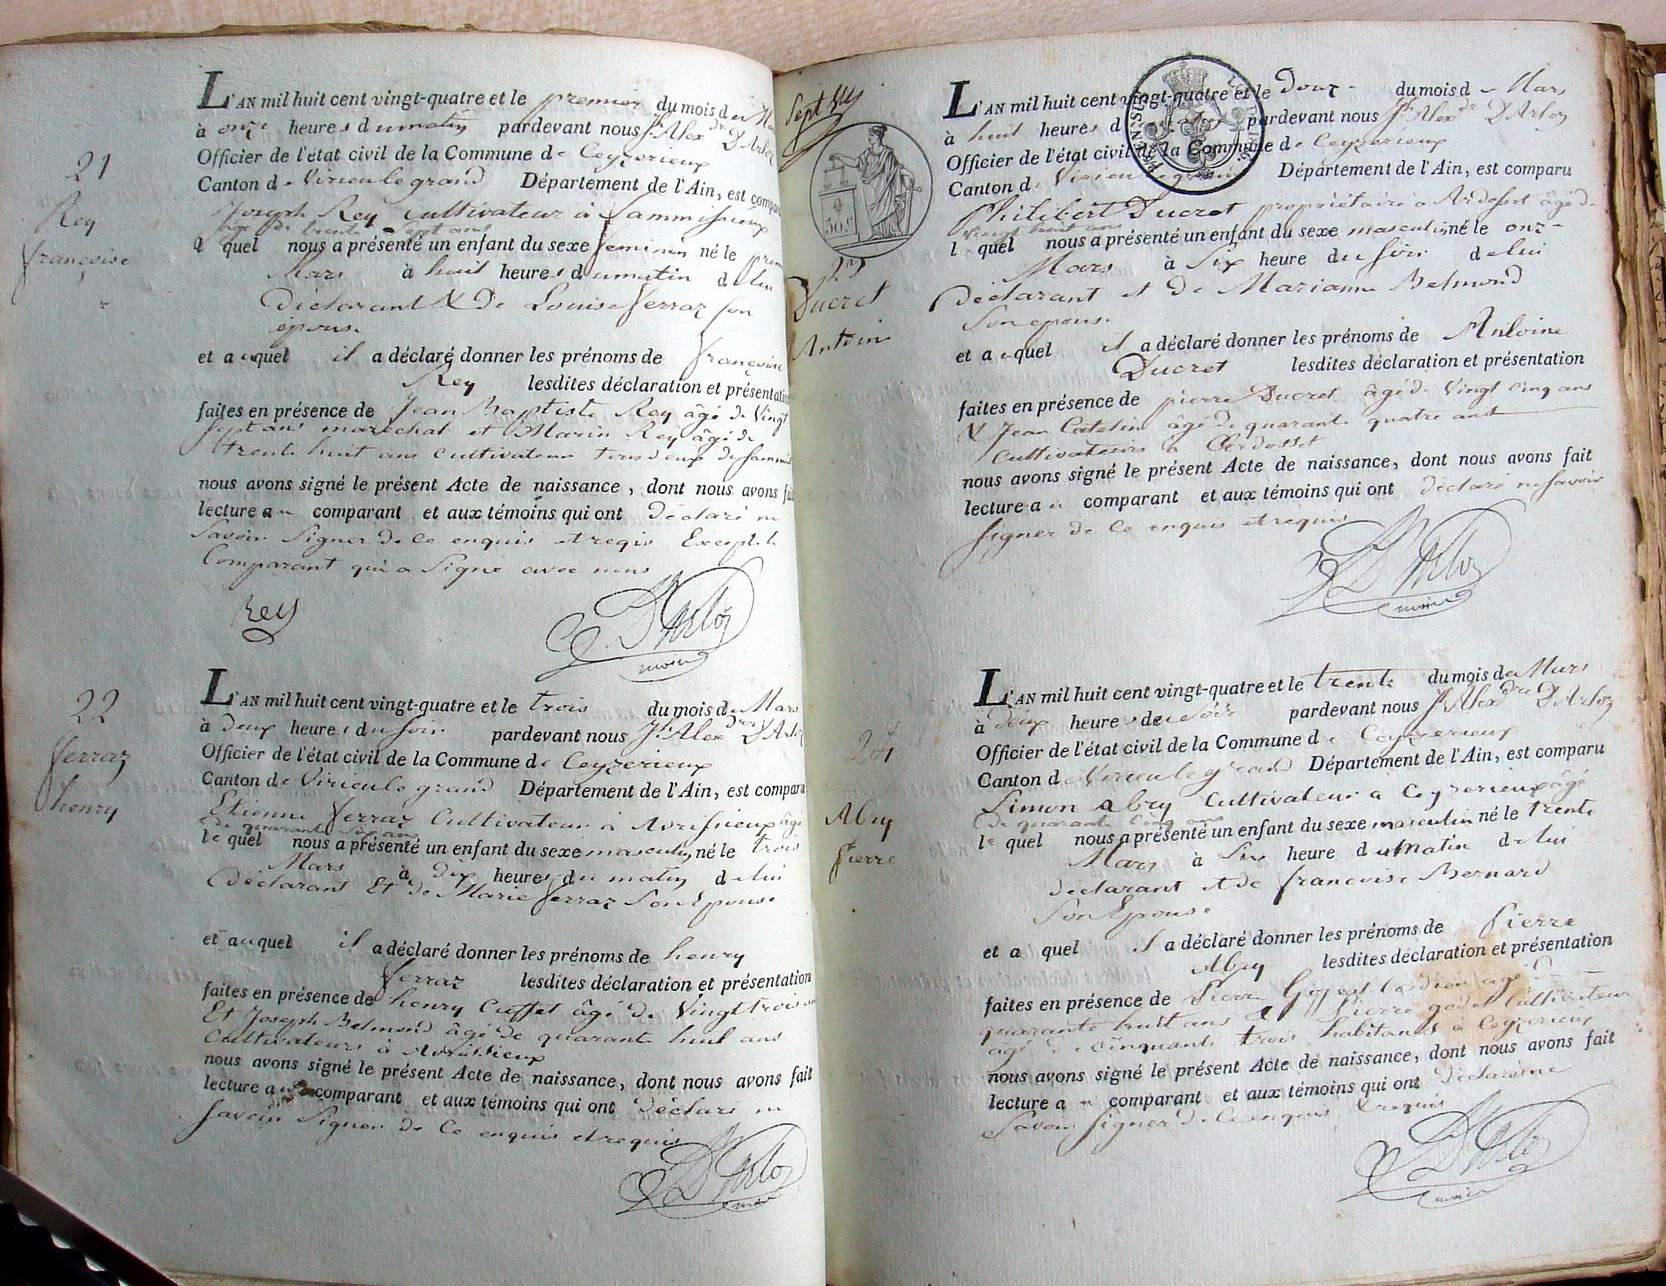 21
Rey
françoise
L'AN mil huit cent vingt-quatre et le premier du mois de
à onze heures du matin pardevant nous Jh Alexdre D'Arloz
Officier de l'état civil de la Commune de Ceyzerieux
Canton de Virieu le grand Département de l'Ain, est comparu
Joseph Rey Cultivateur à
âgé de trente sept ans
l quel nous a présenté un enfant du sexe feminin né le
Mars à huit heures du matin de lui
Déclarant & De Louise ferraz son
épouse
et auquel il a déclaré donner les prénoms de françoise
Rey lesdites déclaration et présentation
faites en présence de Jean Baptiste Rey âgé de Vingt
sept ans marechal et Marin Rey âgé de
trente huit ans cultivateur tous deux de
nous avons signé le présent Acte de naissance, dont nous avons fait
lecture au comparant et aux témoins qui ont déclaré ne
Savoir Signer de Ce enquis et regis Excepté le
Comparant qui a Signé avec nous
Rey
D'Arloz
maire
22
ferraz
henry
L'AN mil huit cent vingt-quatre et le trois du mois de Mars
à Deux heures du soir pardevant nous Jh Alexdre D'Arloz
Officier de l'état civil de la Commune de Ceyzerieux
Canton de Virieu le grand Département de l'Ain, est comparu
Etienne ferraz Cultivateur à Avrissieux âgé
de quarante six ans
le quel nous a présenté un enfant du sexe masculin né le trois
Mars à Dix heures du matin de lui
Déclarant Et de Marie ferraz Son Epouse
et auquel il a déclaré donner les prénoms de henry
ferraz lesdites déclaration et présentation
faites en présence de henry Cuffet âgé de Vingt trois
Et Joseph Belmond âgé de quarante huit ans
Cultivateurs à Avrissieux
nous avons signé le présent Acte de naissance, dont nous avons fait
lecture au comparant et aux témoins qui ont déclaré ne
savoir Signer de Ce enquis et requis
D'Arloz
maire
Ducret
Antoin
L'AN mil huit cent vingt-quatre et le Douz du mois d Mars
à huit heures d pardevant nous Jh Alexdr D'Arloz
Officier de l'état civil de la Commune de Ceyzerieux
Canton d Virieu Département de l'Ain, est comparu
Philibert Ducret propriétaire a Ardosset âgé de
Vingt huit ans
l quel nous a présenté un enfant du sexe masculin né le onz
Mars à Six heure du Soir de lui
Déclarant et De Marianne Belmond
Son epouse
et a uquel il a déclaré donner les prénoms de Antoine
Ducret lesdites déclaration et présentation
faites en présence de pierre Ducret âgé de Vingt Cinq ans
& Jean Catelin âgé de quarante quatre ans
Cultivateurs a
nous avons signé le présent Acte de naissance, dont nous avons fait
lecture a u comparant et aux témoins qui ont déclaré ne savoir
signer de Ce enquis et requis
D'Arloz
maire
Abry
Pierre
L'AN mil huit cent vingt-quatre et le trente du mois de Mars
à Deux heures de Soir pardevant nous Jh Alexdre D'Arloz
Officier de l'état civil de la Commune d e Ceyzerieux
Canton d Virieu le grand Département de l'Ain, est comparu
Simon abry Cultivateur a Ceyzerieux âgé
de quarante Cinq ans
le quel nous a présenté un enfant du sexe masculin né le trente
Mars à Six heure du Matin de lui
déclarant et de francoise Bernard
Son Epouse
et a quel il a déclaré donner les prénoms de Pierre
Abry lesdites déclaration et présentation
faites en présence de Pierre
quarante huit ans & Pierre godet Cultivateur
agé de Cinquante trois habitans a Ceyzerieux
nous avons signé le présent Acte de naissance, dont nous avons fait
lecture a u comparant et aux témoins qui ont déclaré ne
Savoir signer de Ce enquis & requis
D'Arloz
maire